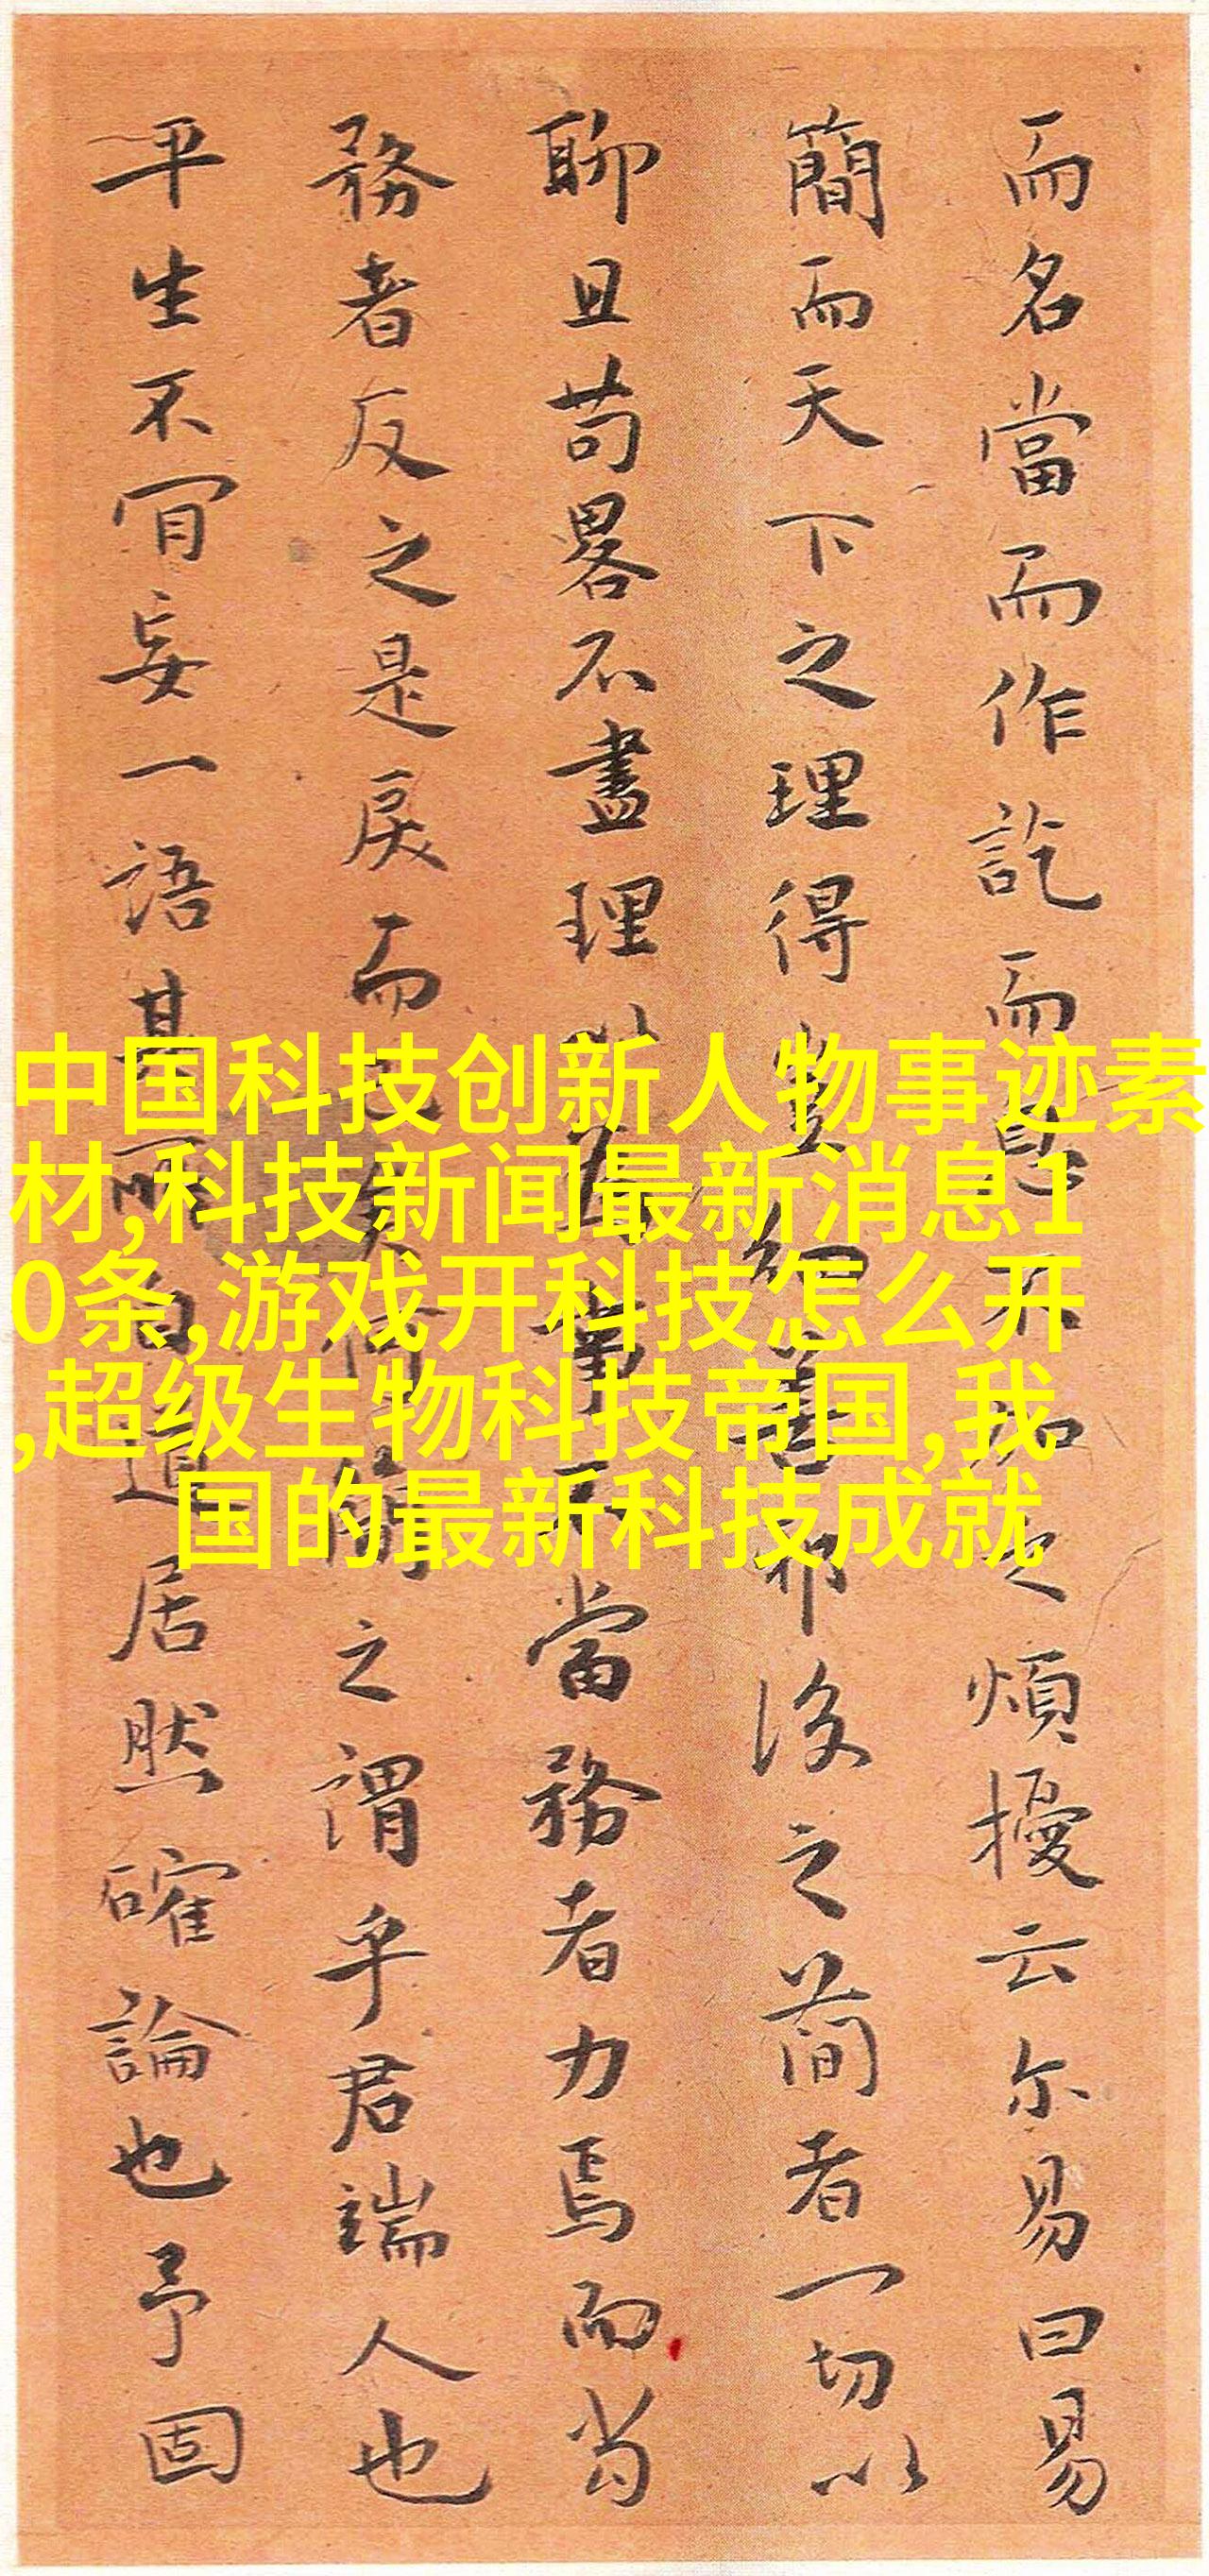 而名當而作訖而息不之煩擾云尔易曰易
簡而天下之理得豈細耶後之簡者一切以
聊且苟畧不盡理事不當務者力焉而當
務者反之是戾而簡之謂乎君端人也
平生不肎妄一語其所自道居然確論也予固
中国科技创新人物事迹素
材,科技新闻最新消息1
0条,游戏开科技怎么开
,超级生物科技帝国,我
国的最新科技成就